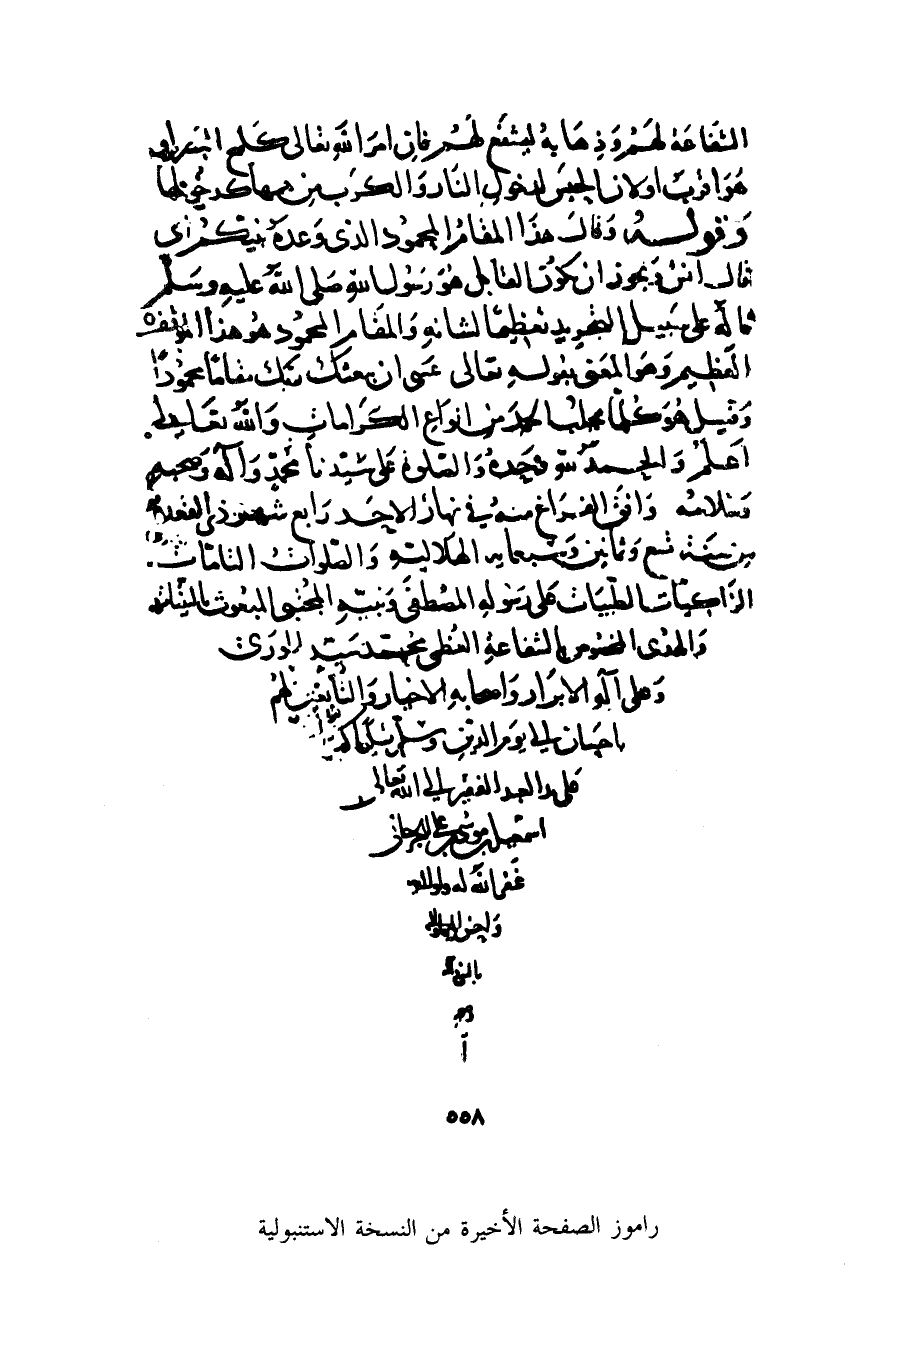 الشفاعة لهم وذهابه ليشفع لهم فان امر الله تعالى كلهم
هو اقرب اولان الحبس لدخول النار والكرب من
وقوله وقال هذا المقام المحمود الذى وعده نبيكم اى
قال انس ويجوز ان يكون القائل هو رسول الله صلى الله عليه وسلم
قاله على سبيل التجريد تعظيما لشانه والمقام المحمود هو هذا
العظيم وهو المعنى بقوله تعالى عسى ان يبعثك ربك مقاما محمودا
وقيل هو كلما يجلب الحمد من انواع الكرامات والله تعالى
اعلم والحمد لله وحده والصلوة على سيدنا محمد وآله وصحبه
وسلامه وافق الفراغ منه في نهار الاحد رابع شهر ذى القعدة
من سنة تسع وثمانين وسبعمايه الهلالية والصلوات التامات
الزاكيات الطيبات على رسوله المصطفى ونبيه المجتبى المبعوث
والهدى المخصوص بالشفاعة العظمى محمد سيد الورى
وعلى آله الابرار واصحابه الاخيار والتابعين لهم
باحسان الى يوم الدين وسلم تسليما
على يد العبد الفقير الى الله تعالى
غفر الله له ولوالديه
٥٥٨
راموز الصفحة الأخيرة من النسخة الاستنبولية